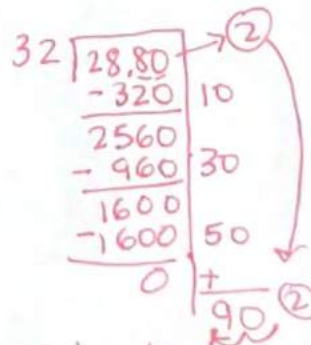 32 28.80 ②
-320 10
2560
- 960 30
1600
-1600 50
0 +
90 ②